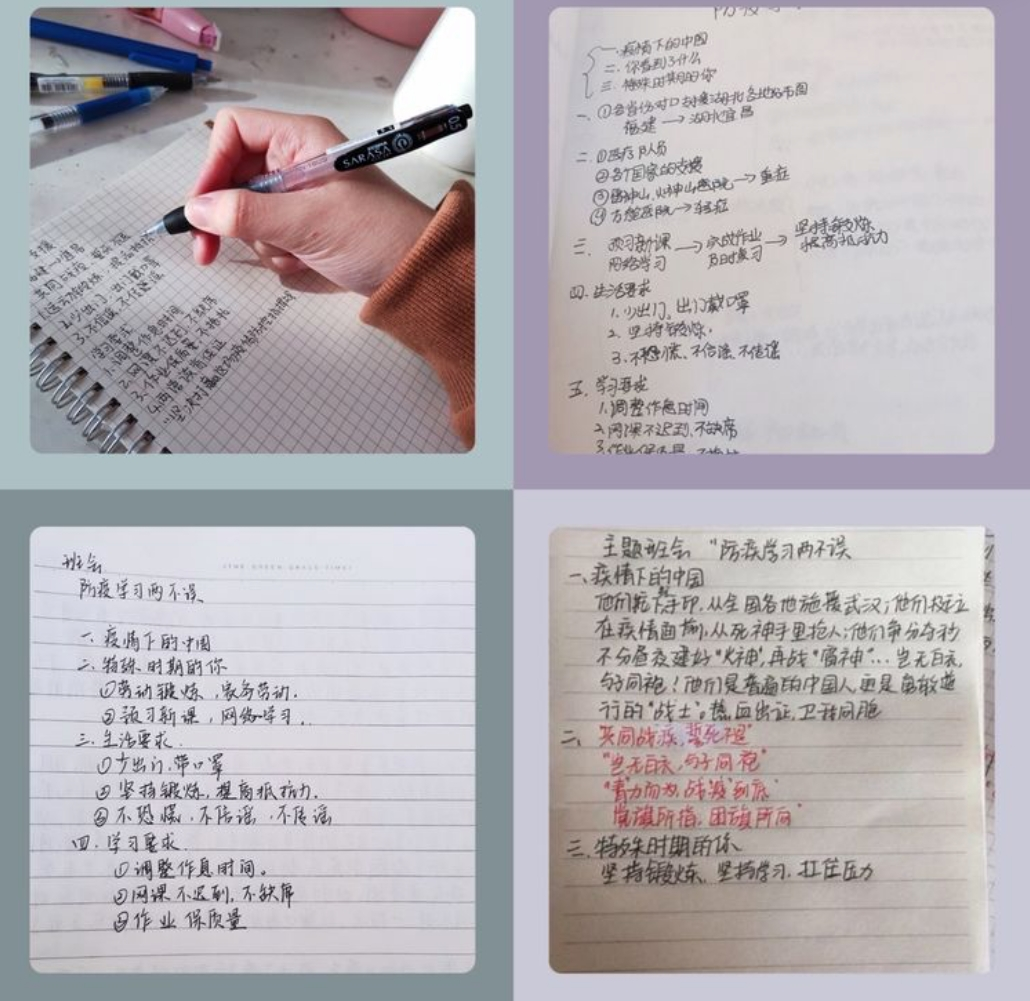 SARASA
0.5
2.少出门、出门戴口罩
3.不信谣、不传谣
1.调整作息时间
一.疫情下的中国
二.你看到了什么
三.特殊时期的你
一、①各省份对口支援湖北各地好市图
福建→湖北宜昌
二.①医疗队人员
②各个国家的支援
③雷神山,火神山医院→重症
④方舱医院→轻症
三.预习新课→完成作业→坚持锻炼
网络学习 及时复习 提高抵抗力
四.生活要求
1.少出门,出门戴口罩
2.坚持锻炼.
3.不恐慌、不信谣、不传谣
五.学习要求
1.调整作息时间
2.网课不迟到、不缺席
班会
防疫学习两不误
一.疫情下的中国
二.特殊时期的你
①劳动锻炼,家务劳动.
②预习新课,网络学习.
三.生活要求.
①少出门,带口罩
②坚持锻炼,提高抵抗力.
③不恐慌,不信谣,不传谣
四.学习要求.
①调整作息时间。
②网课不迟到,不缺席
③作业保质量
主题班会 "防疫学习两不误
一、疫情下的中国
他们按下手印,从全国各地施援武汉;他们挺立
在疫情面前,从死神手里抢人;他们争分夺秒
不分昼夜建好"火神",再战"雷神"…岂无白衣,
与子同袍!他们是普通的中国人更是勇敢逆
行的"战士"。热血出征,卫护同胞
二、"共同战疫,誓死不退"
"岂无白衣,与子同袍"
党旗所指,团旗所向"
三.特殊时期的你
坚持锻炼、坚持学习.扛住压力